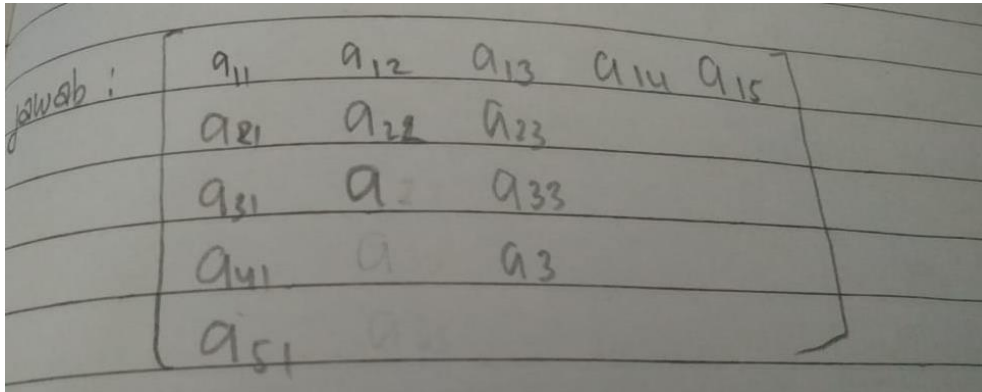 jawab : a11 a12 a13 a14 a15
a21 a22 a23
a31 a a33
a41 a a3
a51 a